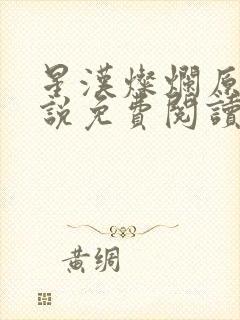 星漢燦爛原
說免費閱讀
黃綢